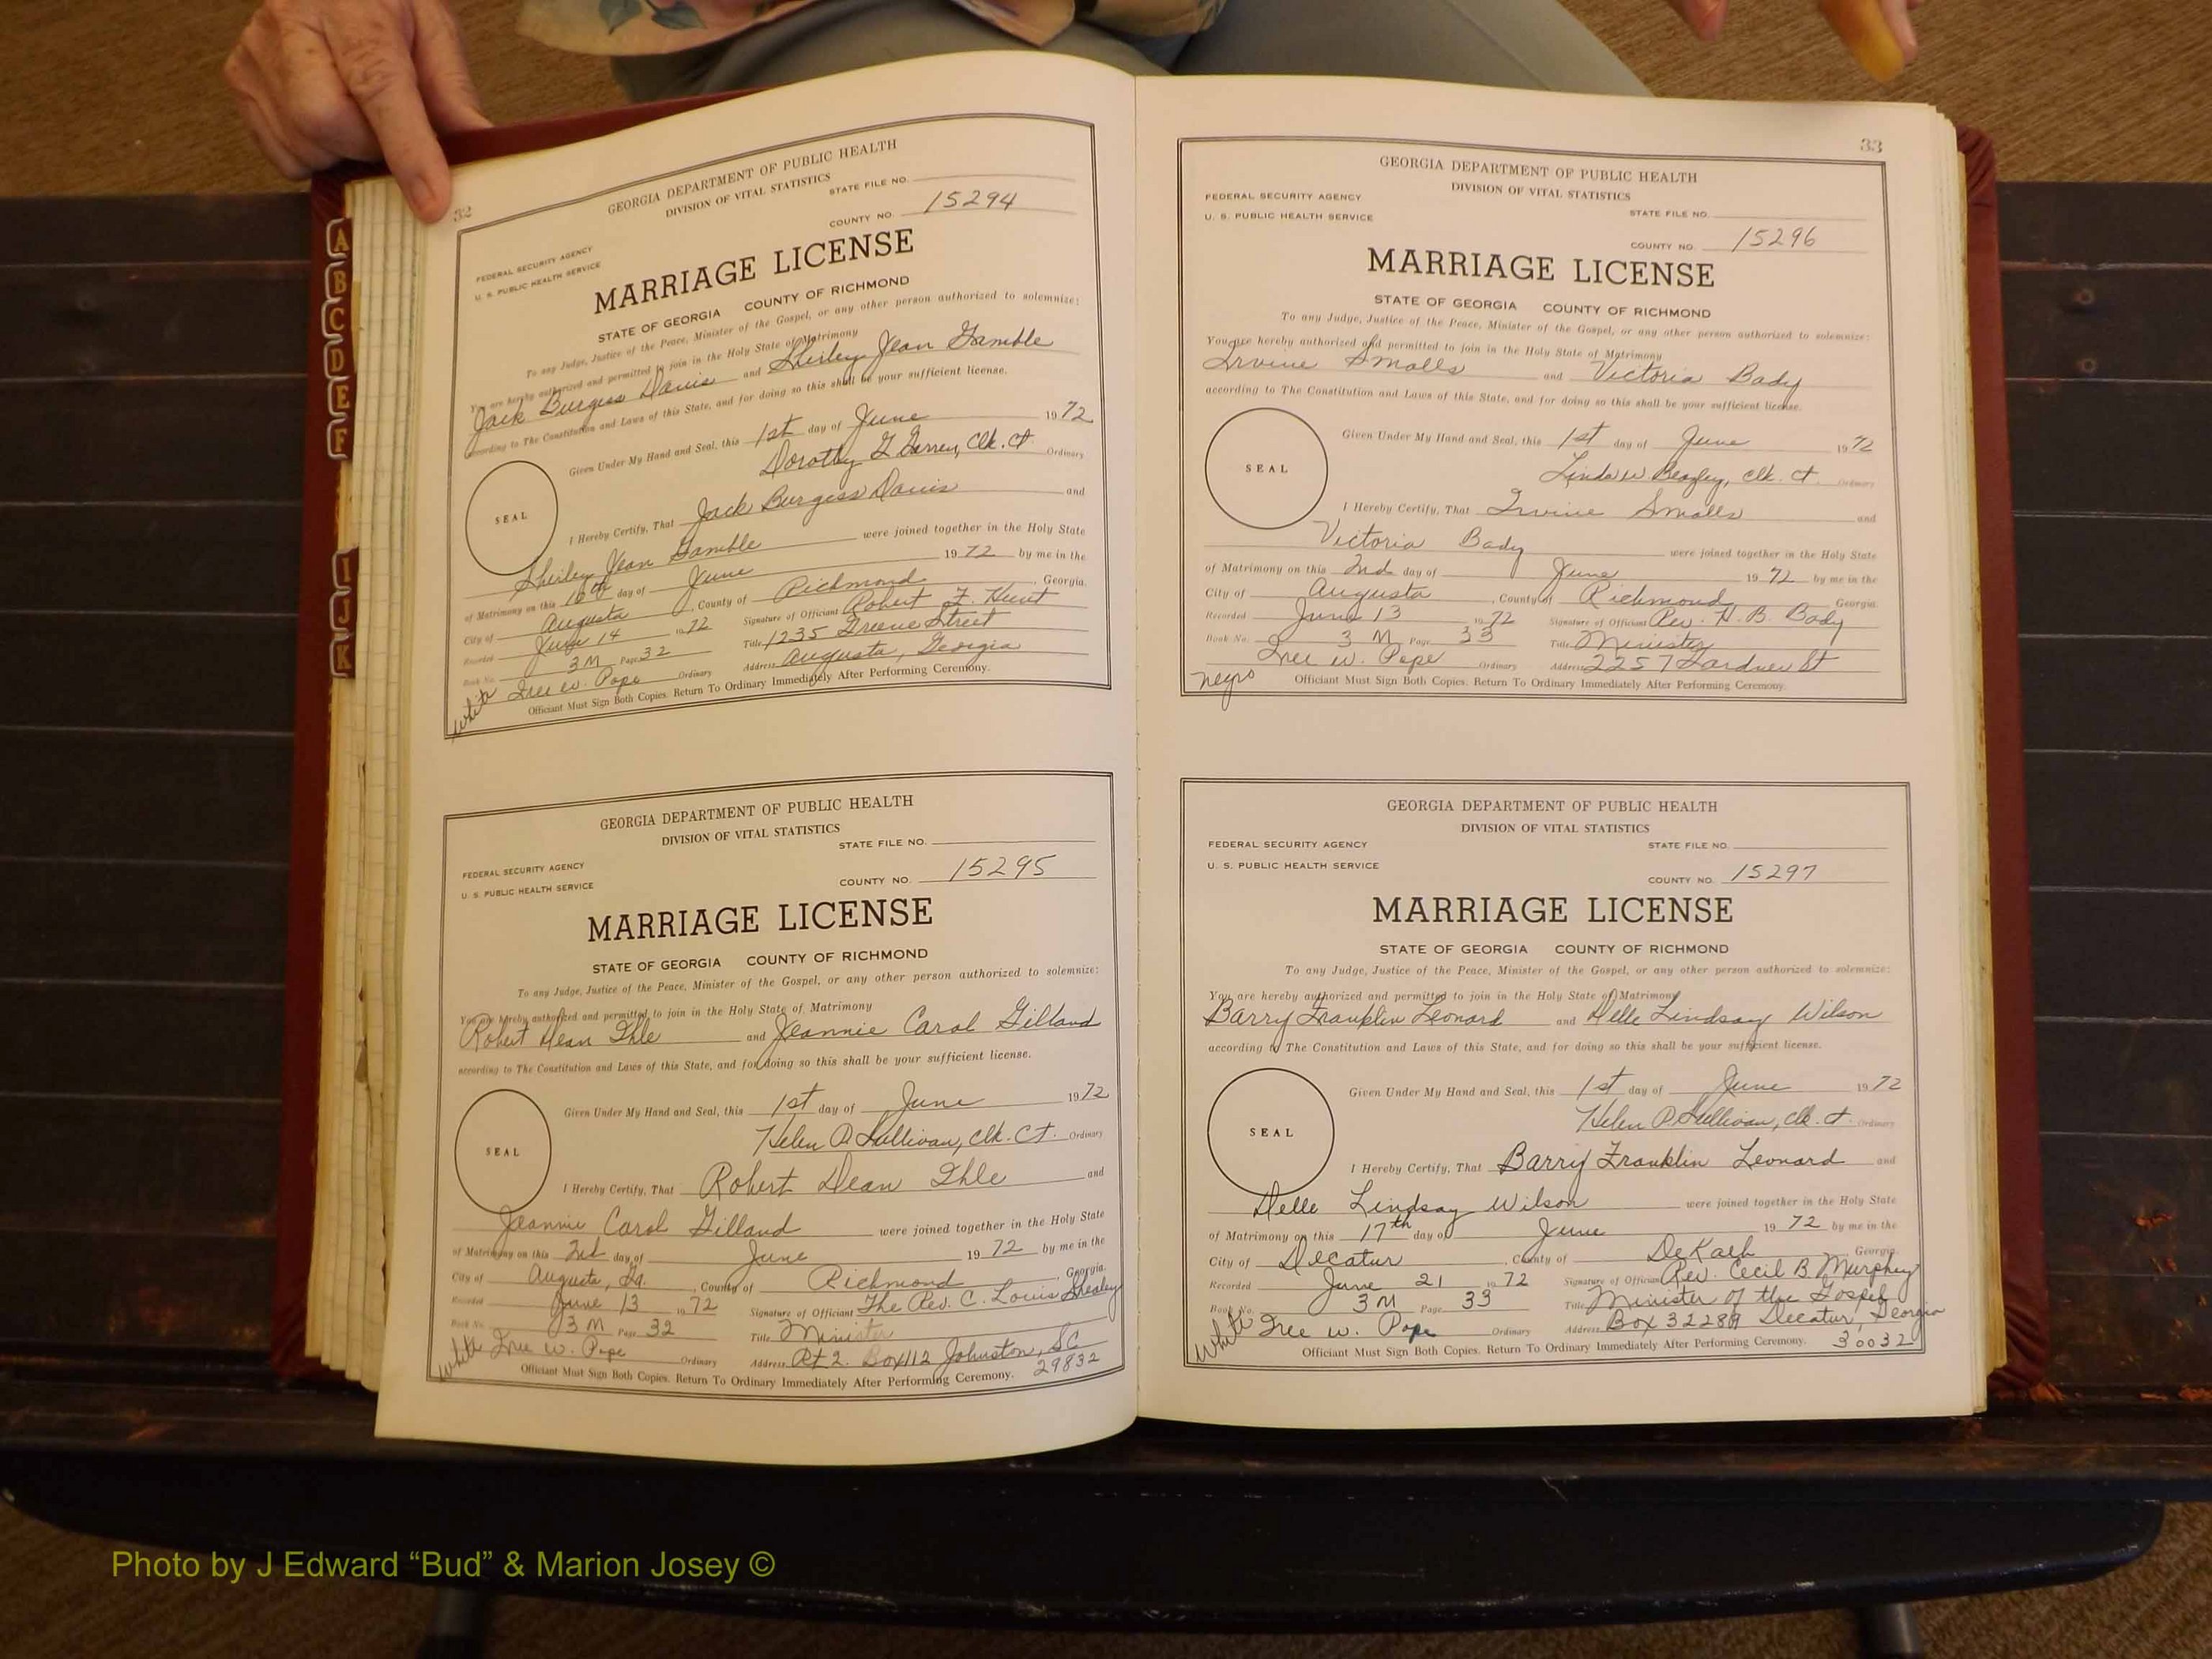 A
B
C
D
E
F
I
J
K
32
GEORGIA DEPARTMENT OF PUBLIC HEALTH
DIVISION OF VITAL STATISTICS
STATE FILE NO.
COUNTY NO. 15294
FEDERAL SECURITY AGENCY
U. S. PUBLIC HEALTH SERVICE
MARRIAGE LICENSE
STATE OF GEORGIA COUNTY OF RICHMOND
To any Judge, Justice of the Peace, Minister of the Gospel, or any other person authorized to solemnize:
You are hereby authorized and permitted to join in the Holy State of Matrimony
Jack Burgess Davis and Shirley Jean Gamble
according to The Constitution and Laws of this State, and for doing so this shall be your sufficient license.
Given Under My Hand and Seal, this 1st day of June 1972
Dorothy G. Clk. Ct. Ordinary
SEAL
I Hereby Certify, That Jack Burgess Davis and
Shirley Jean Gamble were joined together in the Holy State
of Matrimony on this 10th day of June 1972 by me in the
City of Augusta, County of Richmond, Georgia.
Recorded June 14 1972 Signature of Officiant Robert F. Hunt
Book No. 3M Page 32 Title 1235 Greene Street
Iree W. Pope Ordinary Address Augusta, Georgia
white
Officiant Must Sign Both Copies. Return To Ordinary Immediately After Performing Ceremony.
GEORGIA DEPARTMENT OF PUBLIC HEALTH
DIVISION OF VITAL STATISTICS
STATE FILE NO.
FEDERAL SECURITY AGENCY
U. S. PUBLIC HEALTH SERVICE
COUNTY NO. 15295
MARRIAGE LICENSE
STATE OF GEORGIA COUNTY OF RICHMOND
To any Judge, Justice of the Peace, Minister of the Gospel, or any other person authorized to solemnize:
You are hereby authorized and permitted to join in the Holy State of Matrimony
Robert Dean Ihle and Jeannie Carol Gilland
according to The Constitution and Laws of this State, and for doing so this shall be your sufficient license.
Given Under My Hand and Seal, this 1st day of June 1972
Helen P. Sullivan, Clk. Ct. Ordinary
SEAL
I Hereby Certify, That Robert Dean Ihle and
Jeannie Carol Gilland were joined together in the Holy State
of Matrimony on this 2nd day of June 1972 by me in the
City of Augusta, Ga., County of Richmond, Georgia.
Recorded June 13 1972 Signature of Officiant The Rev. C. Louis Shealey
Book No. 3M Page 32 Title Minister
white Iree W. Pope Ordinary Address Rt 2. Box 112 Johnston, SC
29832
Officiant Must Sign Both Copies. Return To Ordinary Immediately After Performing Ceremony.
33
GEORGIA DEPARTMENT OF PUBLIC HEALTH
DIVISION OF VITAL STATISTICS
FEDERAL SECURITY AGENCY
U. S. PUBLIC HEALTH SERVICE
STATE FILE NO.
COUNTY NO. 15296
MARRIAGE LICENSE
STATE OF GEORGIA COUNTY OF RICHMOND
To any Judge, Justice of the Peace, Minister of the Gospel, or any other person authorized to solemnize:
You are hereby authorized and permitted to join in the Holy State of Matrimony
Irvine Smalls and Victoria Bady
according to The Constitution and Laws of this State, and for doing so this shall be your sufficient license.
Given Under My Hand and Seal, this 1st day of June 1972
Linda W. Beazley, Clk. Ct. Ordinary
SEAL
I Hereby Certify, That Irvine Smalls and
Victoria Bady were joined together in the Holy State
of Matrimony on this 2nd day of June 1972 by me in the
City of Augusta, County of Richmond Georgia.
Recorded June 13 1972 Signature of Officiant Rev. H. B. Bady
Book No. 3 M Page 33 Title Minister
Iree W. Pope Ordinary Address 2257 Gardner St
negro
Officiant Must Sign Both Copies. Return To Ordinary Immediately After Performing Ceremony.
GEORGIA DEPARTMENT OF PUBLIC HEALTH
DIVISION OF VITAL STATISTICS
FEDERAL SECURITY AGENCY
STATE FILE NO.
U. S. PUBLIC HEALTH SERVICE
COUNTY NO. 15297
MARRIAGE LICENSE
STATE OF GEORGIA COUNTY OF RICHMOND
To any Judge, Justice of the Peace, Minister of the Gospel, or any other person authorized to solemnize:
You are hereby authorized and permitted to join in the Holy State of Matrimony
Barry Franklin Leonard and Delle Lindsay Wilson
according to The Constitution and Laws of this State, and for doing so this shall be your sufficient license.
Given Under My Hand and Seal, this 1st day of June 1972
Helen P. Sullivan, Clk. Ct. Ordinary
SEAL
I Hereby Certify, That Barry Franklin Leonard and
Delle Lindsay Wilson were joined together in the Holy State
of Matrimony on this 17th day of June 1972 by me in the
City of Decatur, County of DeKalb Georgia.
Recorded June 21 1972 Signature of Officiant Rev. Cecil B. Murphey
Book No. 3 M Page 33 Title Minister of the Gospel
white Iree W. Pope Ordinary Address Box 32289 Decatur, Georgia
Officiant Must Sign Both Copies. Return To Ordinary Immediately After Performing Ceremony. 30032
Photo by J Edward “Bud” & Marion Josey ©